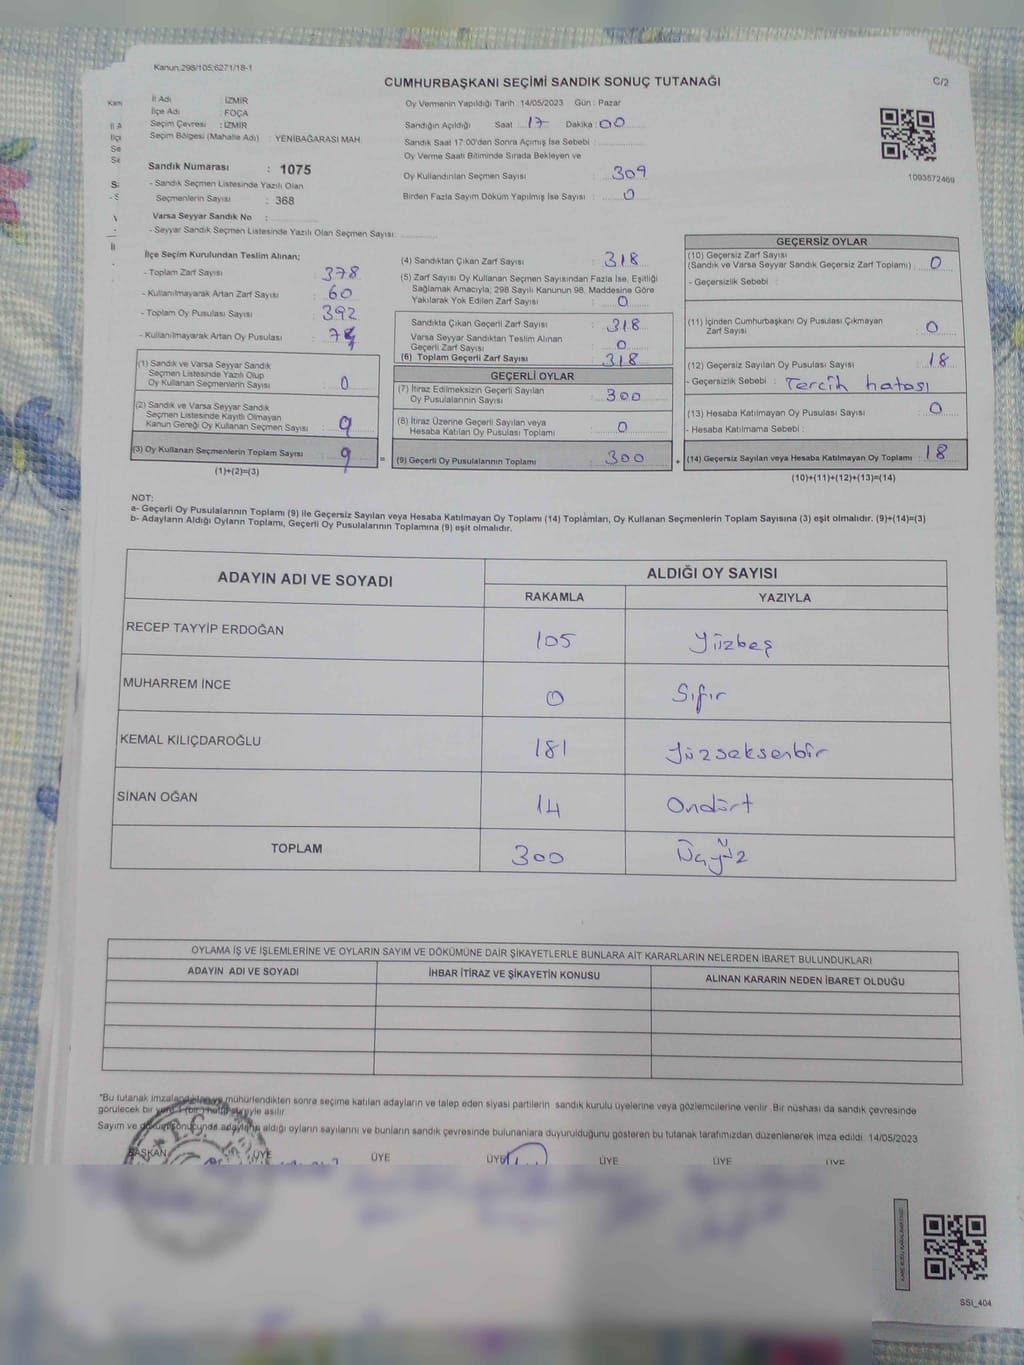 Kanun:298/105;6271/18-1
CUMHURBAŞKANI SEÇİMİ SANDIK SONUÇ TUTANAĞI
C/2
İl Adı : İZMİR
İlçe Adı : FOÇA
Seçim Çevresi : İZMİR
Seçim Bölgesi (Mahalle Adı) : YENİBAĞARASI MAH
Sandık Numarası : 1075
- Sandık Seçmen Listesinde Yazılı Olan
Seçmenlerin Sayısı : 368
Varsa Seyyar Sandık No :
- Seyyar Sandık Seçmen Listesinde Yazılı Olan Seçmen Sayısı:
Oy Vermenin Yapıldığı Tarih : 14/05/2023 Gün : Pazar
Sandığın Açıldığı Saat : 17 Dakika : 00
Sandık Saat 17:00'den Sonra Açılmış İse Sebebi :
Oy Verme Saati Bitiminde Sırada Bekleyen ve
Oy Kullandırılan Seçmen Sayısı : 309
Birden Fazla Sayım Döküm Yapılmış İse Sayısı : 0
1093572469
İlçe Seçim Kurulundan Teslim Alınan;
- Toplam Zarf Sayısı : 378
- Kullanılmayarak Artan Zarf Sayısı : 60
- Toplam Oy Pusulası Sayısı : 392
- Kullanılmayarak Artan Oy Pusulası :
(1) Sandık ve Varsa Seyyar Sandık
Seçmen Listesinde Yazılı Olup
Oy Kullanan Seçmenlerin Sayısı : 0
(2) Sandık ve Varsa Seyyar Sandık
Seçmen Listesinde Kayıtlı Olmayan
Kanun Gereği Oy Kullanan Seçmen Sayısı : 9
(3) Oy Kullanan Seçmenlerin Toplam Sayısı : 9
(1)+(2)=(3)
(4) Sandıktan Çıkan Zarf Sayısı : 318
(5) Zarf Sayısı Oy Kullanan Seçmen Sayısından Fazla İse, Eşitliği
Sağlamak Amacıyla; 298 Sayılı Kanunun 98. Maddesine Göre
Yakılarak Yok Edilen Zarf Sayısı : 0
Sandıkta Çıkan Geçerli Zarf Sayısı : 318
Varsa Seyyar Sandıktan Teslim Alınan
Geçerli Zarf Sayısı : 0
(6) Toplam Geçerli Zarf Sayısı : 318
GEÇERLİ OYLAR
(7) İtiraz Edilmeksizin Geçerli Sayılan
Oy Pusulalarının Sayısı : 300
(8) İtiraz Üzerine Geçerli Sayılan veya
Hesaba Katılan Oy Pusulası Toplamı : 0
= (9) Geçerli Oy Pusulalarının Toplamı : 300
GEÇERSİZ OYLAR
(10) Geçersiz Zarf Sayısı
(Sandık ve Varsa Seyyar Sandık Geçersiz Zarf Toplamı) : 0
- Geçersizlik Sebebi :
(11) İçinden Cumhurbaşkanı Oy Pusulası Çıkmayan
Zarf Sayısı : 0
(12) Geçersiz Sayılan Oy Pusulası Sayısı : 18
- Geçersizlik Sebebi : Tercih hatası
(13) Hesaba Katılmayan Oy Pusulası Sayısı : 0
- Hesaba Katılmama Sebebi :
+ (14) Geçersiz Sayılan veya Hesaba Katılmayan Oy Toplamı : 18
(10)+(11)+(12)+(13)=(14)
NOT:
a- Geçerli Oy Pusulalarının Toplamı (9) ile Geçersiz Sayılan veya Hesaba Katılmayan Oy Toplamı (14) Toplamları, Oy Kullanan Seçmenlerin Toplam Sayısına (3) eşit olmalıdır. (9)+(14)=(3)
b- Adayların Aldığı Oyların Toplamı, Geçerli Oy Pusulalarının Toplamına (9) eşit olmalıdır.
ADAYIN ADI VE SOYADI
ALDIĞI OY SAYISI
RAKAMLA YAZIYLA
RECEP TAYYİP ERDOĞAN 105 Yüzbeş
MUHARREM İNCE 0 Sıfır
KEMAL KILIÇDAROĞLU 181 Yüzseksenbir
SİNAN OĞAN 14 Ondört
TOPLAM 300 Üçyüz
OYLAMA İŞ VE İŞLEMLERİNE VE OYLARIN SAYIM VE DÖKÜMÜNE DAİR ŞİKAYETLERLE BUNLARA AİT KARARLARIN NELERDEN İBARET BULUNDUKLARI
ADAYIN ADI VE SOYADI İHBAR İTİRAZ VE ŞİKAYETİN KONUSU ALINAN KARARIN NEDEN İBARET OLDUĞU
*Bu tutanak imzalandıktan ve mühürlendikten sonra seçime katılan adayların ve talep eden siyasi partilerin sandık kurulu üyelerine veya gözlemcilerine verilir. Bir nüshası da sandık çevresinde
görülecek bir yere 1 (bir) hafta süreyle asılır.
Sayım ve döküm sonucunda adayların aldığı oyların sayılarını ve bunların sandık çevresinde bulunanlara duyurulduğunu gösteren bu tutanak tarafımızdan düzenlenerek imza edildi. 14/05/2023
BAŞKAN ÜYE ÜYE ÜYE ÜYE ÜYE ÜYE
SSI_404